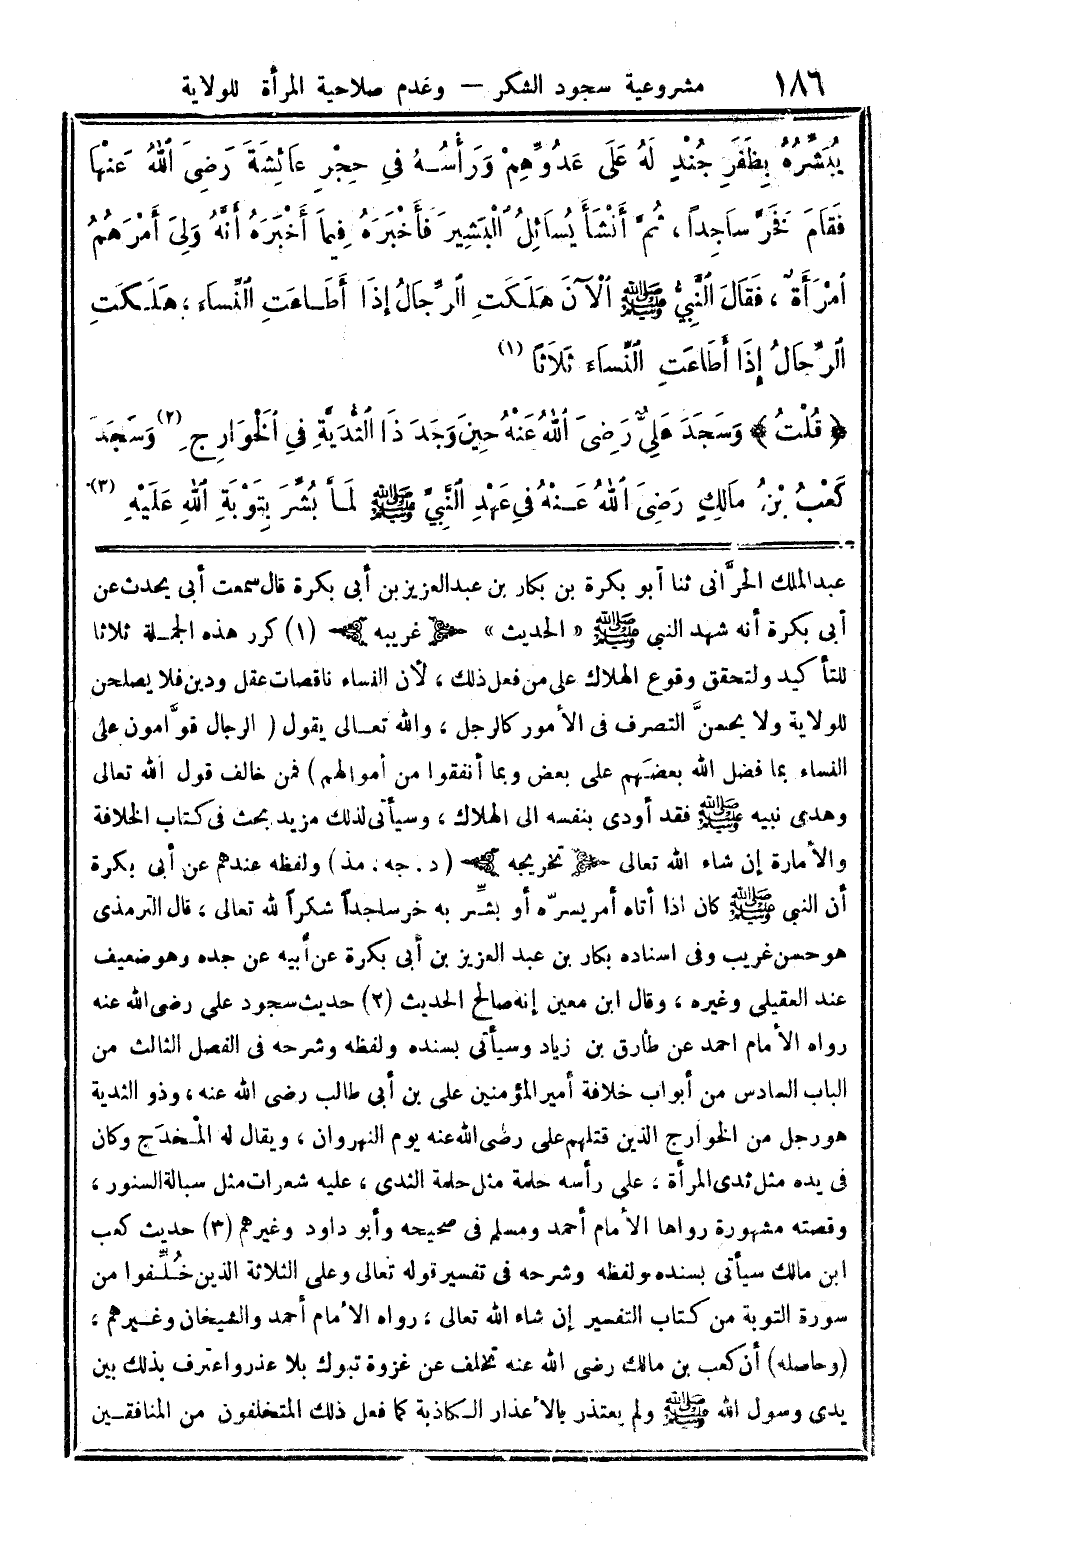 ١٨٦ مشروعية سجود الشكر — وعدم صلاحية المرأة للولاية
يُبَشِّرُهُ بِظَفَرِ جُنْدٍ لَهُ عَلَى عَدُوِّهِمْ وَرَأْسُهُ فِي حِجْرِ عَائِشَةَ رَضِىَ اللهُ عَنْهَا
فَقَامَ فَخَرَّ سَاجِداً ، ثُمَّ أَنْشَأَ يُسَائِلُ الْبَشِيرَ فَأَخْبَرَهُ فِيمَا أَخْبَرَهُ أَنَّهُ وَلِىَ أَمْرَهُمُ
امْرَأَةٌ ، فَقَالَ النَّبِيُّ ﷺ الْآنَ هَلَكَتِ الرِّجَالُ إِذَا أَطَاعَتِ النِّسَاءَ ، هَلَكَتِ
الرِّجَالُ إِذَا أَطَاعَتِ النِّسَاءَ ثَلَاثًا (١)
﴿ قُلْتُ ﴾ وَسَجَدَ عَلِيٌّ رَضِىَ اللهُ عَنْهُ حِينَ وَجَدَ ذَا الثُّدَيَّةِ فِي الْخَوَارِجِ (٢) وَسَجَدَ
كَعْبُ بْنُ مَالِكٍ رَضِىَ اللهُ عَنْهُ فِي عَهْدِ النَّبِيِّ ﷺ لَمَّا بُشِّرَ بِتَوْبَةِ اللهِ عَلَيْهِ (٣)
عبد الملك الحرَّانى ثنا أبو بكرة بن بكار بن عبد العزيز بن أبى بكرة قال سمعت أبى يحدث عن
أبى بكرة أنه شهد النبي ﷺ « الحديث » ﴿ غريبه ﴾ (١) كرر هذه الجملة ثلاثا
للتأكيد ولتحقق وقوع الهلاك على من فعل ذلك ، لأن النساء ناقصات عقل ودين فلا يصلحن
للولاية ولا يحسنَّ التصرف فى الأمور كالرجل ، والله تعالى يقول ( الرجال قوَّامون على
النساء بما فضل الله بعضهم على بعض وبما أنفقوا من أموالهم ) فمن خالف قول الله تعالى
وهدى نبيه ﷺ فقد أودى بنفسه الى الهلاك ، وسيأتى لذلك مزيد بحث فى كتاب الخلافة
والأمارة إن شاء الله تعالى ﴿ تخريجه ﴾ ( د . جه . مذ ) ولفظه عندهم عن أبى بكرة
أن النبي ﷺ كان اذا أتاه أمر يسرّه أو بشِّر به خر ساجداً شكراً لله تعالى ، قال الترمذى
هو حسن غريب وفى اسناده بكار بن عبد العزيز بن أبى بكرة عن أبيه عن جده وهو ضعيف
عند العقيلى وغيره ، وقال ابن معين إنه صالح الحديث (٢) حديث سجود علي رضى الله عنه
رواه الأمام احمد عن طارق بن زياد وسيأتى بسنده ولفظه وشرحه فى الفصل الثالث من
الباب السادس من أبواب خلافة أمير المؤمنين على بن أبى طالب رضى الله عنه ، وذو الثدية
هو رجل من الخوارج الذين قتلهم على رضى الله عنه يوم النهروان ، ويقال له المُخْدَج وكان
فى يده مثل ثدى المرأة ، على رأسه حلمة مثل حلمة الثدى ، عليه شعرات مثل سبالة السنور ،
وقصته مشهورة رواها الأمام أحمد ومسلم فى صحيحه وأبو داود وغيرهم (٣) حديث كعب
ابن مالك سيأتى بسنده ولفظه وشرحه فى تفسير قوله تعالى وعلى الثلاثة الذين خُلِّفوا من
سورة التوبة من كتاب التفسير إن شاء الله تعالى ، رواه الأمام أحمد والشيخان وغيرهم ،
(وحاصله) أن كعب بن مالك رضى الله عنه تخلف عن غزوة تبوك بلا عذر واعترف بذلك بين
يدى رسول الله ﷺ ولم يعتذر بالأعذار الكاذبة كما فعل ذلك المتخلفون من المنافقين